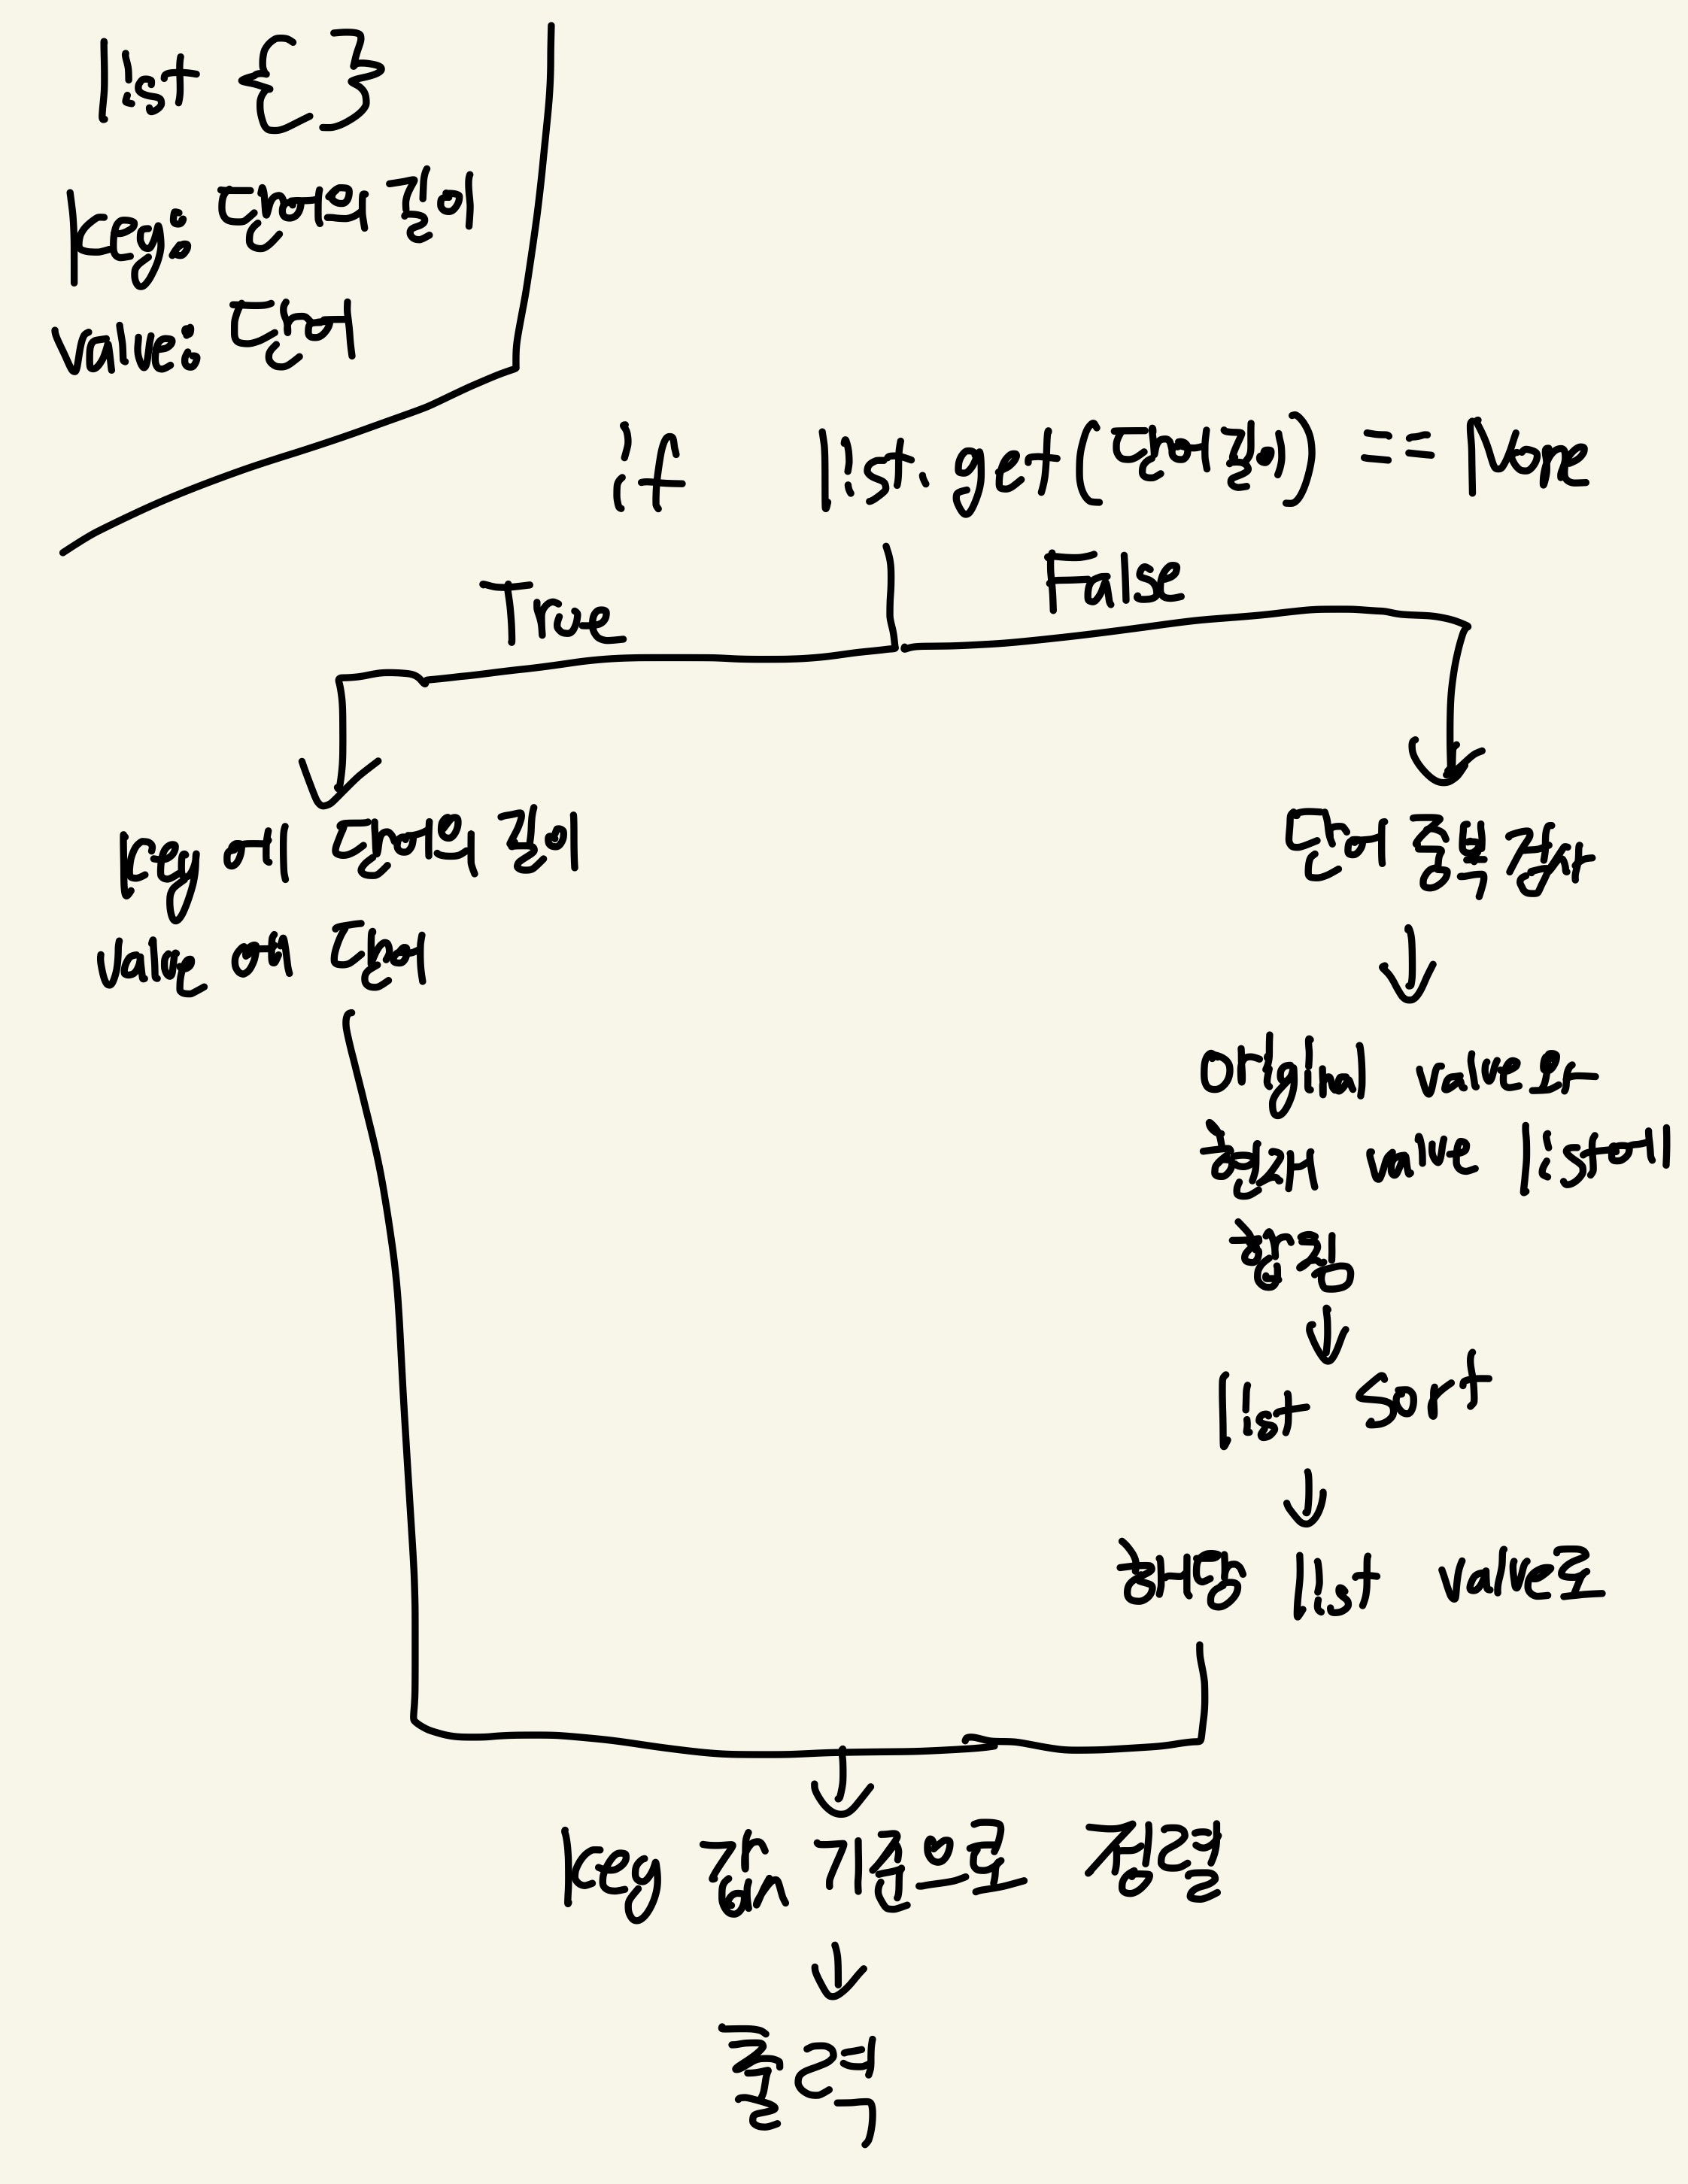 list { }
key: 단어의 길이
value: 단어
if list.get(단어길이) == None
True
False
key에 단어의 길이
value에 단어
단어 중복 검사
original value와
현재 value list에
합침
list sort
해당 list value로
key 값 기준으로 정렬
출력